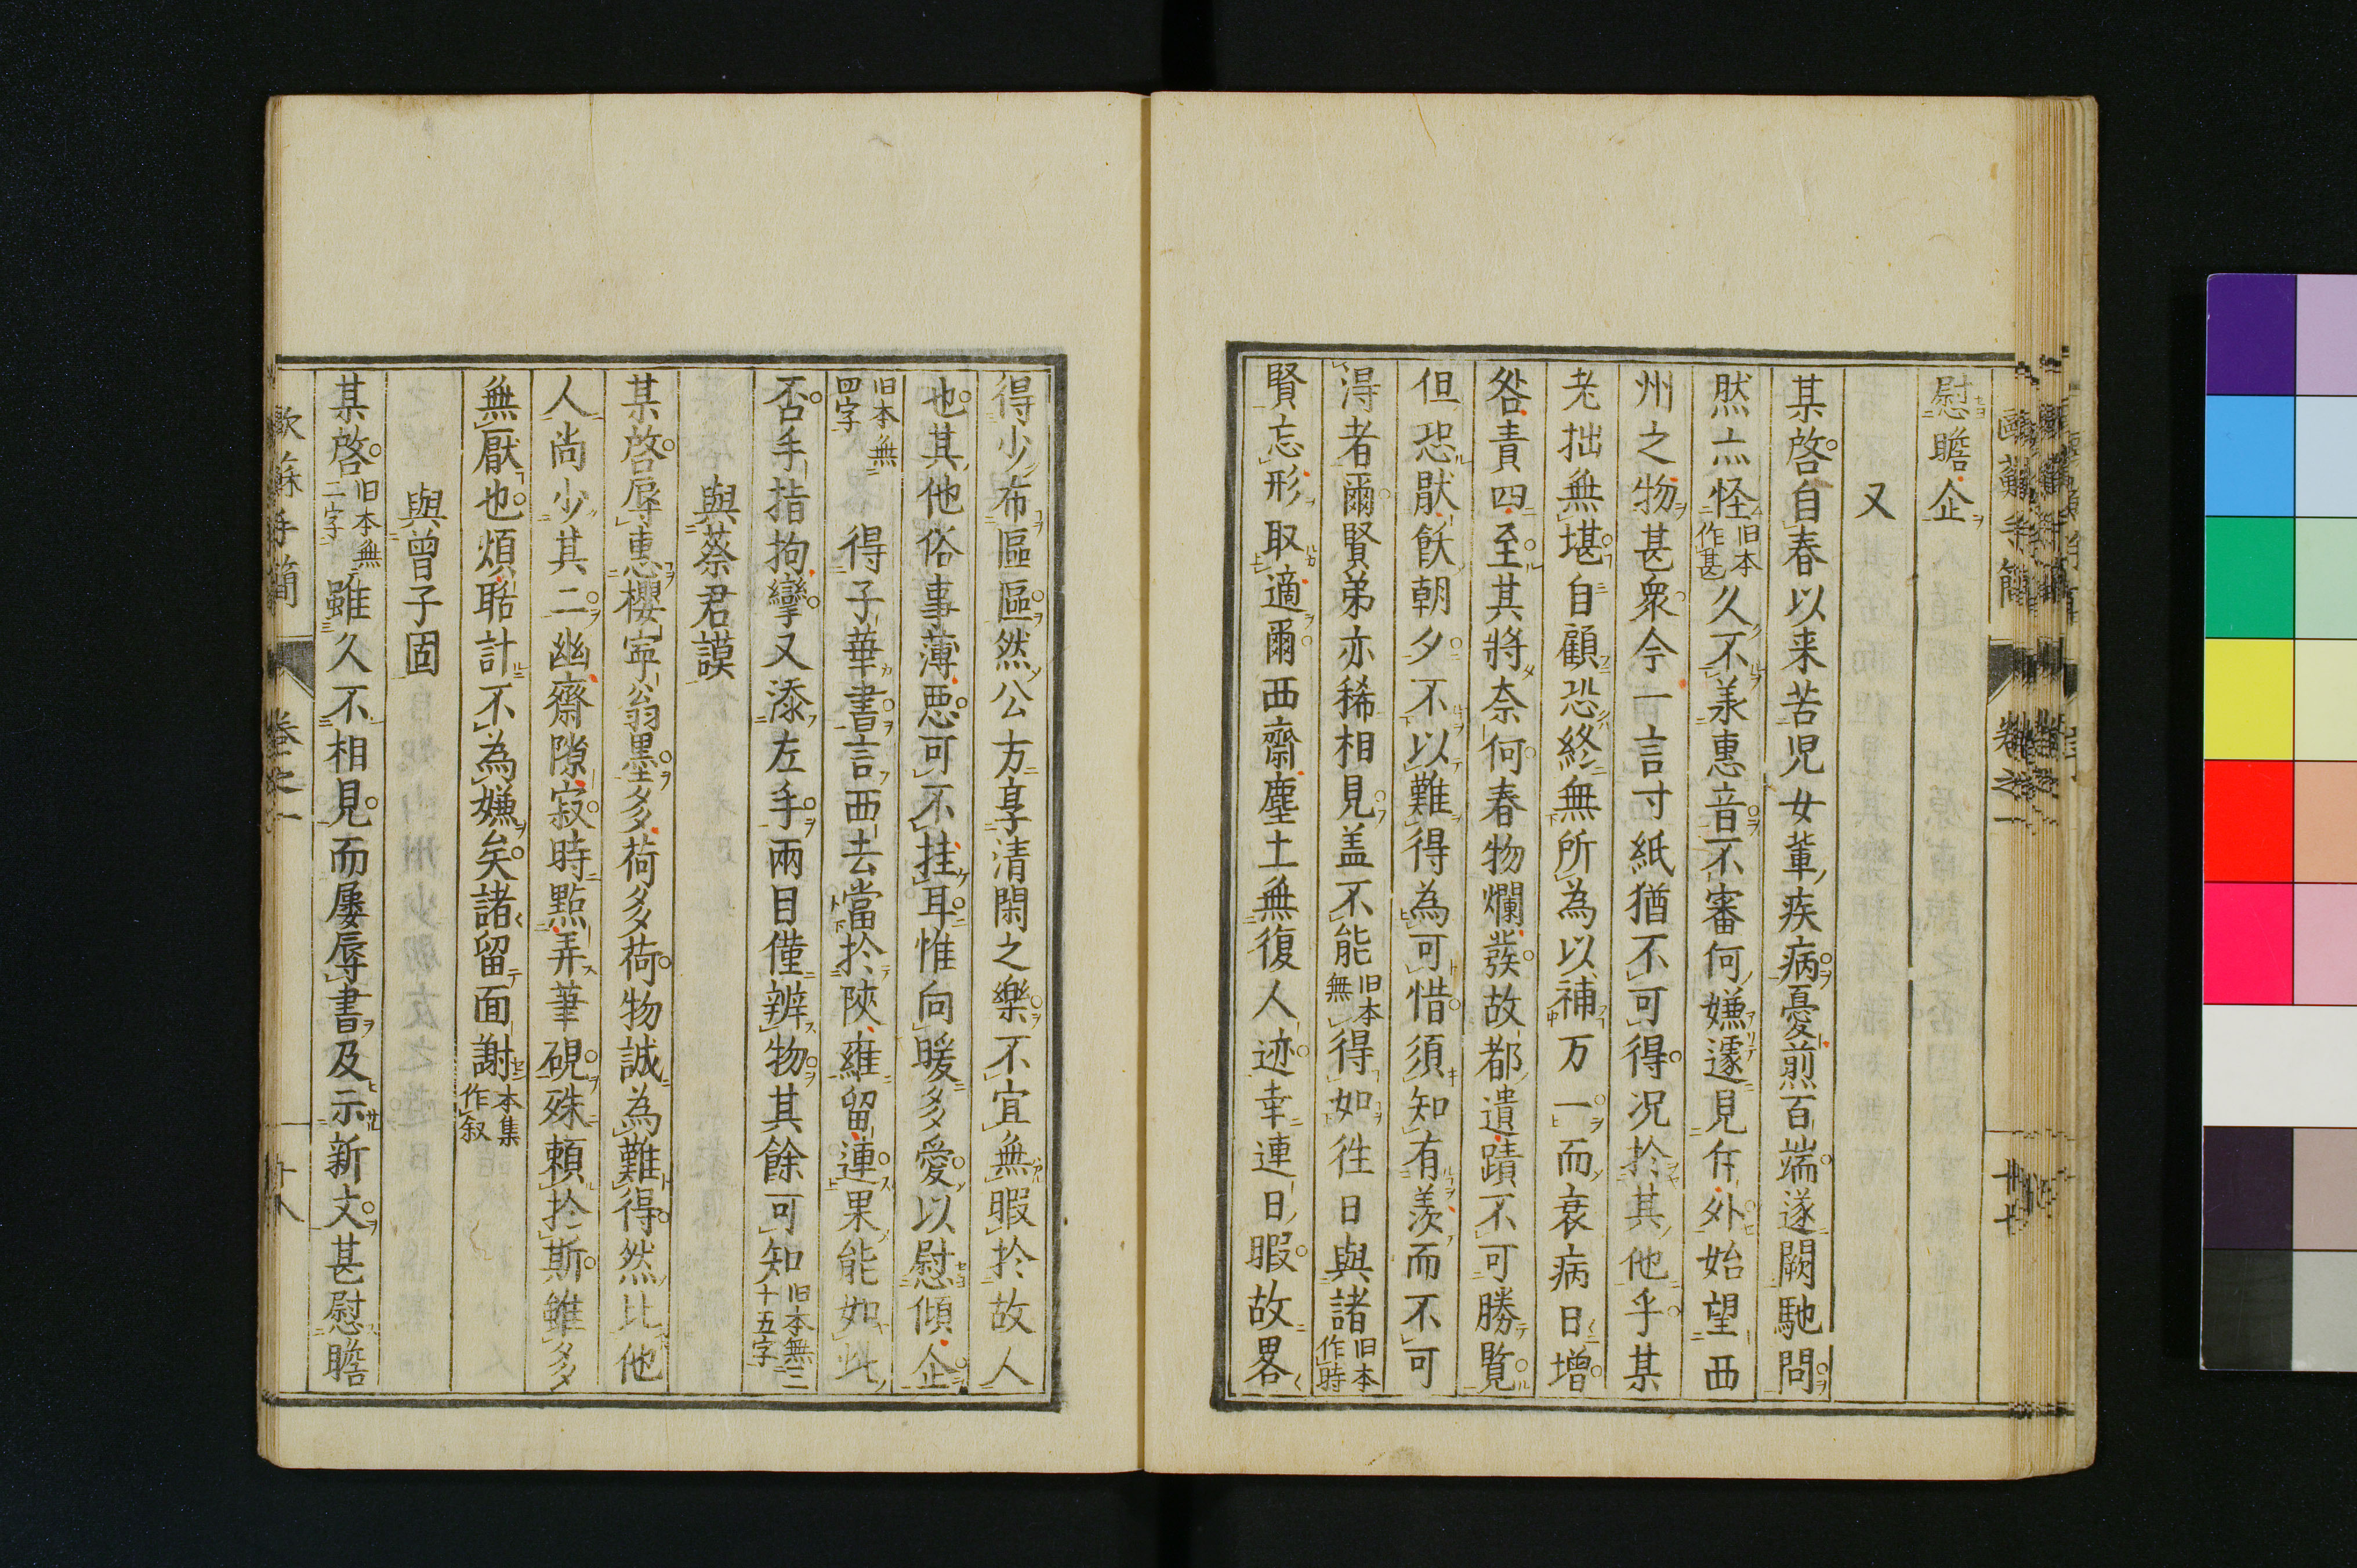 慰瞻企
又
某啓自春以来苦児女輩疾病憂煎百端遂闕馳問
然亦怪旧本作甚久不羕惠音不審何嫌遽見斥外始望西
州之物甚衆今一言寸紙猶不可得况扵其他乎某
老拙無堪自顧恐終無所為以補万一而衰病日增
咎責四至其將奈何春物爛發故都遺蹟不可勝覧
但恐厭飫朝夕不以難得為可惜須知有羨而不可
得者爾賢弟亦稀相見盖不能旧本無得如往日與諸旧本作時
賢忘形取適爾西齋塵土無復人迹幸連日暇故畧
歐蘇手簡 卷之一 十七
得少布區區然公方享清閑之樂不宜無暇扵故人
也其他俗事薄悪可不挂耳惟向暖多愛以慰傾企
旧本無四字 得子華書言西去當扵陝雍留連果能如此
否手指拘攣又添左手兩目僅辨物其餘可知旧本無二十五字
與蔡君謨
某啓辱惠櫻寧翁墨多荷多荷物誠為難得然比他
人尚少其二幽齋隙寂時點弄筆硯殊賴扵斯雖多
無厭也煩聒計不為嫌矣諸留面謝本集作叙
與曾子固
某啓旧本無二字雖久不相見而屢辱書及示新文甚慰瞻
歐蘇手簡 卷之一 十八